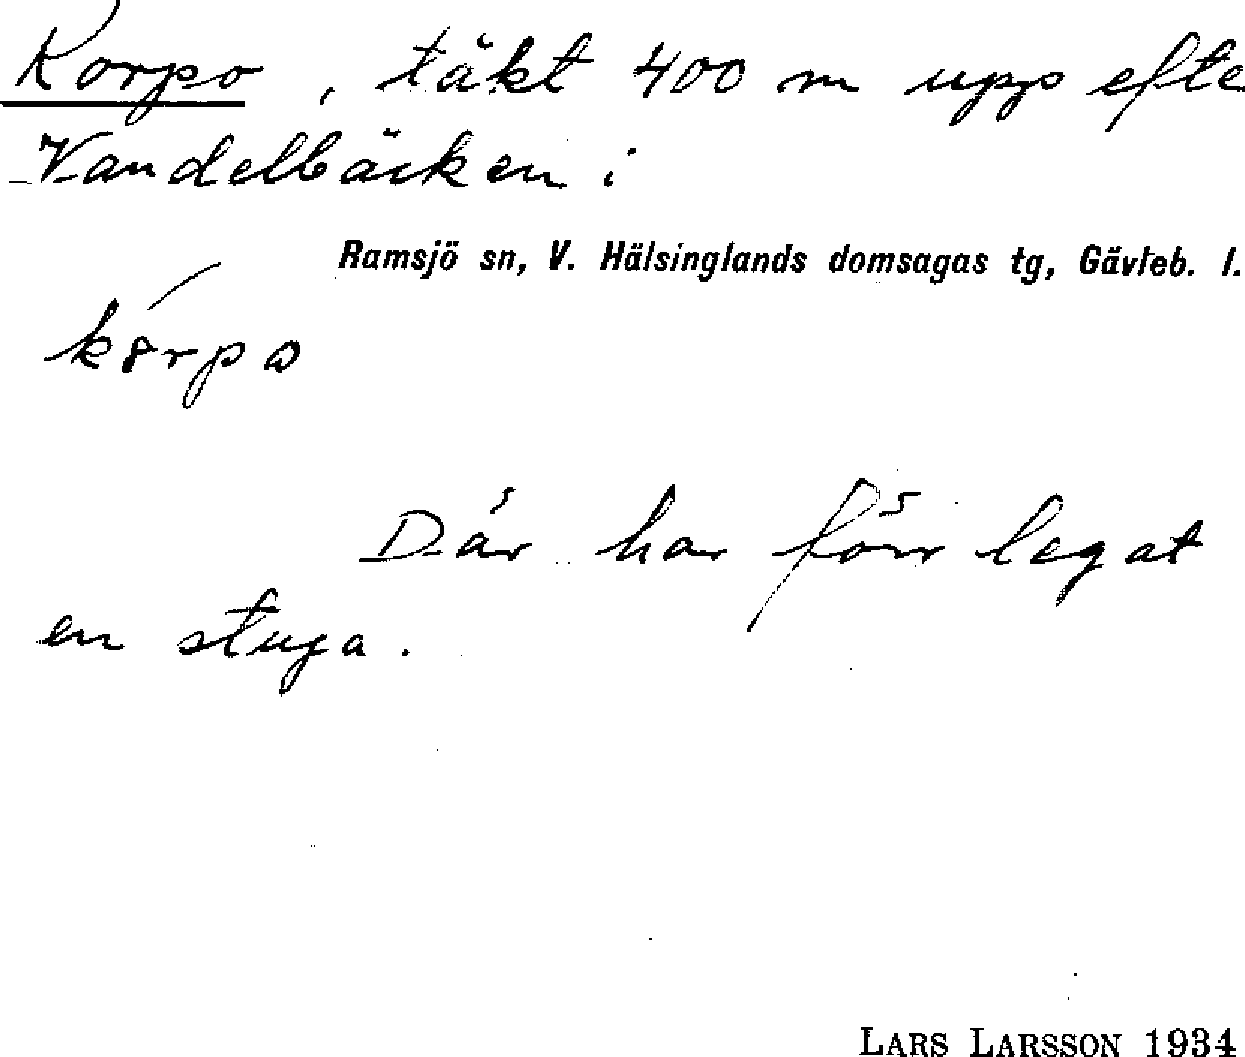 Korpo, täkt 400 m upp efte
Vandelbäcken i
Ramsjö sn, V. Hälsinglands domsagas tg, Gävleb. l.
Där har förr legat
en stuga.
LARS LARSSON 1934